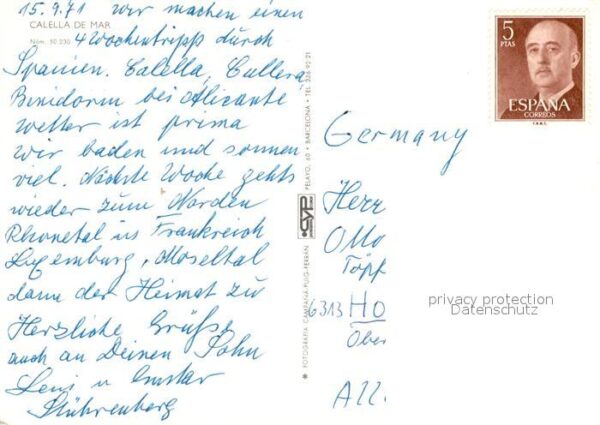 15.9.71 Wir machen einen
CALELLA DE MAR
Núm. 50 230
4 Wochentripp durch
Spanien. Calella, Cullera
Binidorm bei Alicante
Wetter ist prima
Wir baden und sonnen
viel. Nächste Woche gehts
wieder zum Norden
Rhonetal in Frankreich
Luxemburg, Moseltal
dann der Heimat zu
Herzliche Grüße
auch an Deinen Sohn
Leni u Gustav
Stührenberg
✱ FOTOGRAFIA CAMPAÑÁ-PUIG-FERRAN
CYP
PELAYO, 60 • BARCELONA • TEL. 
5
PTAS
ESPAÑA
CORREOS
F.N.M.T.
Germany
Herr
Otto
Töpf
6313 Ho
Ober
All
privacy protection
Datenschutz